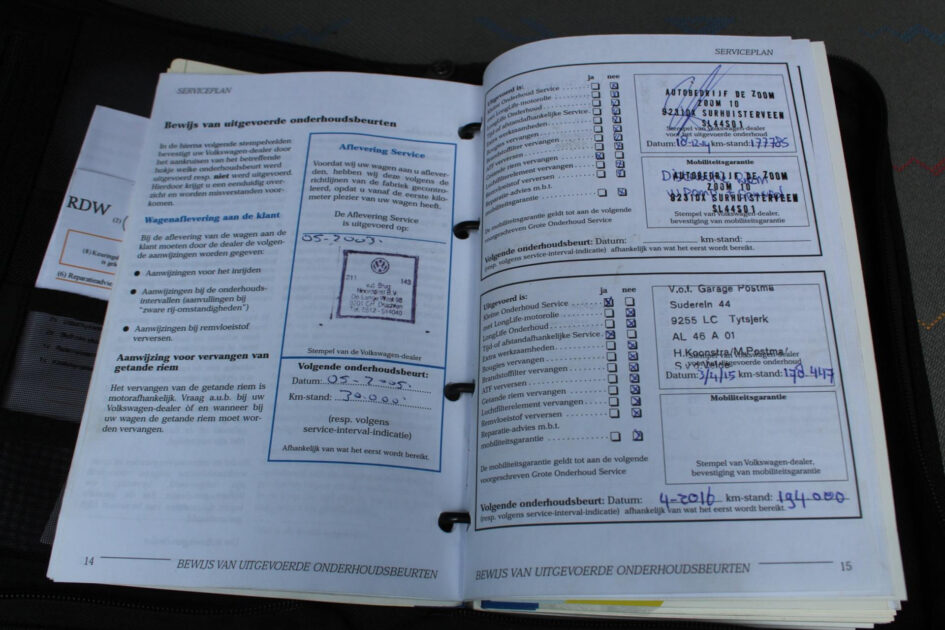 SERVICEPLAN
Bewijs van uitgevoerde onderhoudsbeurten
In de hierna volgende stempelvelden
bevestigt uw Volkswagen-dealer door
het aankruisen van het betreffende
hokje welke onderhoudsbeurt werd
uitgevoerd resp. niet werd uitgevoerd.
Hierdoor krijgt u een eenduidig over-
zicht en worden misverstanden voor-
komen.
Wagenaflevering aan de klant
Bij de aflevering van de wagen aan de
klant moeten door de dealer de volgen-
de aanwijzingen worden gegeven:
● Aanwijzingen voor het inrijden
● Aanwijzingen bij de onderhouds-
intervallen (aanvullingen bij
"zware rij-omstandigheden")
● Aanwijzingen bij remvloeistof
verversen.
Aanwijzing voor vervangen van
getande riem
Het vervangen van de getande riem is
motorafhankelijk. Vraag a.u.b. bij uw
Volkswagen-dealer òf en wanneer bij
uw wagen de getande riem moet wor-
den vervangen.
Aflevering Service
Voordat wij uw wagen aan u afleve-
ren, hebben wij deze volgens de
richtlijnen van de fabriek gecontro-
leerd, opdat u vanaf de eerste kilo-
meter plezier van uw wagen heeft.
De Aflevering Service
is uitgevoerd op:
05-2003.
Stempel van de Volkswagen-dealer
Volgende onderhoudsbeurt:
Datum: 05-2005.
Km-stand: 30.000
(resp. volgens
service-interval-indicatie)
Afhankelijk van wat het eerst wordt bereikt.
14
BEWIJS VAN UITGEVOERDE ONDERHOUDSBEURTEN
RDW
SERVICEPLAN
Uitgevoerd is: ja nee
Kleine Onderhoud Service
met LongLife-motorolie
LongLife Onderhoud
Tijd-of afstandafhankelijke Service
Extra werkzaamheden
Bougies vervangen
Brandstoffilter vervangen
ATF verversen
Getande riem vervangen
Luchtfilterelement vervangen
Remvloeistof verversen
Reparatie-advies m.b.t.
mobiliteitsgarantie
De mobiliteitsgarantie geldt tot aan de volgende
voorgeschreven Grote Onderhoud Service
AUTOBEDRIJF DE ZOOM
ZOOM 10
9231DX SURHUISTERVEEN
SL44501
Stempel van Volkswagen-dealer
Datum: km-stand: 177785
Mobiliteitsgarantie
ZOOM 10
9231DX SURHUISTERVEEN
SL44501
Stempel van Volkswagen-dealer,
bevestiging van mobiliteitsgarantie
Volgende onderhoudsbeurt: Datum: km-stand:
(resp. volgens service-interval-indicatie) afhankelijk van wat het eerst wordt bereikt.
Uitgevoerd is: ja nee
Kleine Onderhoud Service
met LongLife-motorolie
LongLife Onderhoud
Tijd-of afstandafhankelijke Service
Extra werkzaamheden
Bougies vervangen
Brandstoffilter vervangen
ATF verversen
Getande riem vervangen
Luchtfilterelement vervangen
Remvloeistof verversen
Reparatie-advies m.b.t.
mobiliteitsgarantie
De mobiliteitsgarantie geldt tot aan de volgende
voorgeschreven Grote Onderhoud Service
V.o.f. Garage Postma
Suderein 44
9255 LC Tytsjerk
AL 46 A 01
H.Koonstra/M.Postma
Datum: 3/4/15 km-stand: 178.447
Mobiliteitsgarantie
Stempel van Volkswagen-dealer,
bevestiging van mobiliteitsgarantie
Volgende onderhoudsbeurt: Datum: 4-2016 km-stand: 194.000
(resp. volgens service-interval-indicatie) afhankelijk van wat het eerst wordt bereikt.
BEWIJS VAN UITGEVOERDE ONDERHOUDSBEURTEN
15